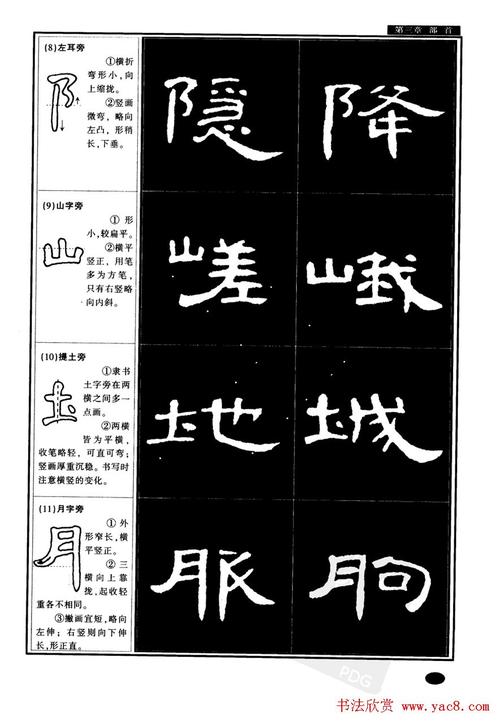 第三章 部 首
(8)左耳旁
①横折
弯形小,向
上缩拢。
②竖画
微弯,略向
左凸,形稍
长,下垂。
隐 降
(9)山字旁
① 形
小,较扁平。
②横平
竖正,用笔
多为方笔,
只有右竖略
向内斜。
山
嵯 峨
(10)提土旁
①隶书
土字旁在两
横之间多一
点画。
②两横
皆为平横,
收笔略轻,可直可弯;
竖画厚重沉稳。书写时
注意横竖的变化。
地 城
(11)月字旁
① 外
形窄长,横
平竖正。
② 三
横向上靠
拢,起收轻
重各不相同。
③撇画宜短,略向
左伸;右竖则向下伸
长,形正直。
月
服 朐
PDG
书法欣赏 www.yac8.com